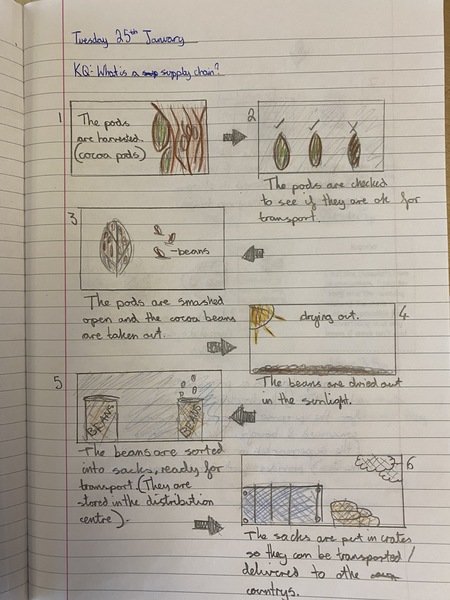 Tuesday 25th January
KQ: What is a supply chain?
1
The pods
are harvested.
(cocoa pods)
2
The pods are checked
to see if they are ok for
transport.
3
-beans
The pods are smashed
open and the cocoa beans
are taken out.
4
drying out.
The beans are dried out
in the sunlight.
5
BEANS
BEANS
The beans are sorted
into sacks, ready for
transport. (They are
stored in the distribution
centre).
6
The sacks are put in crates
so they can be transported/
delivered to othe
countrys.